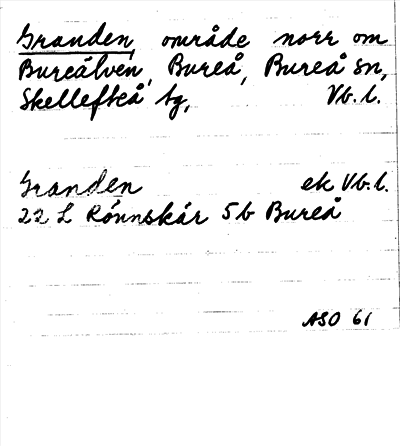 Granden, område norr om
Bureälven, Bureå, Bureå sn,
Skellefteå tg, Vb.l.
Granden ek Vb.l.
22 L Rönnskär 5b Bureå
ASO 61